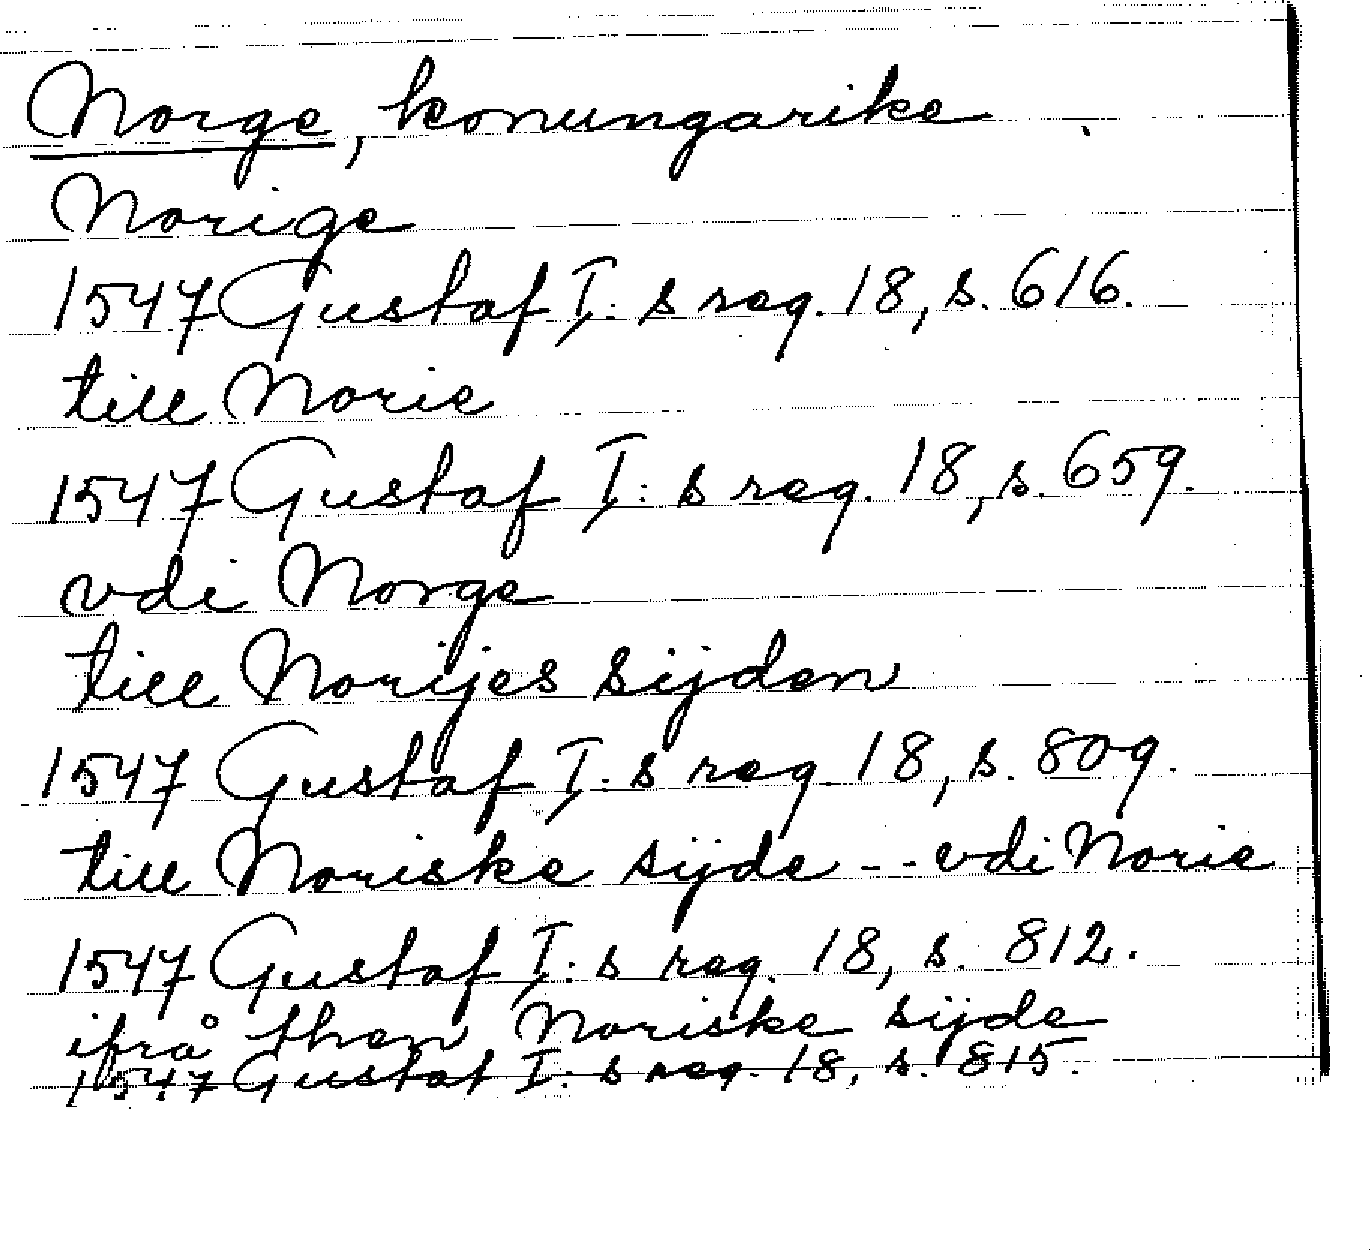 Norge, konungarike
Norige
1547 Gustaf I: s reg. 18, s. 616.
till Norie
1547 Gustaf I: s reg. 18, s. 659.
vdi Norge
till Norijes sijden
1547 Gustaf I: s reg 18, s. 809.
till Noriske sijde -- vdi Norie
1547 Gustaf I: s reg. 18, s. 812.
ifrå then Noriske sijde
1547 Gustaf I: s reg. 18, s. 815.